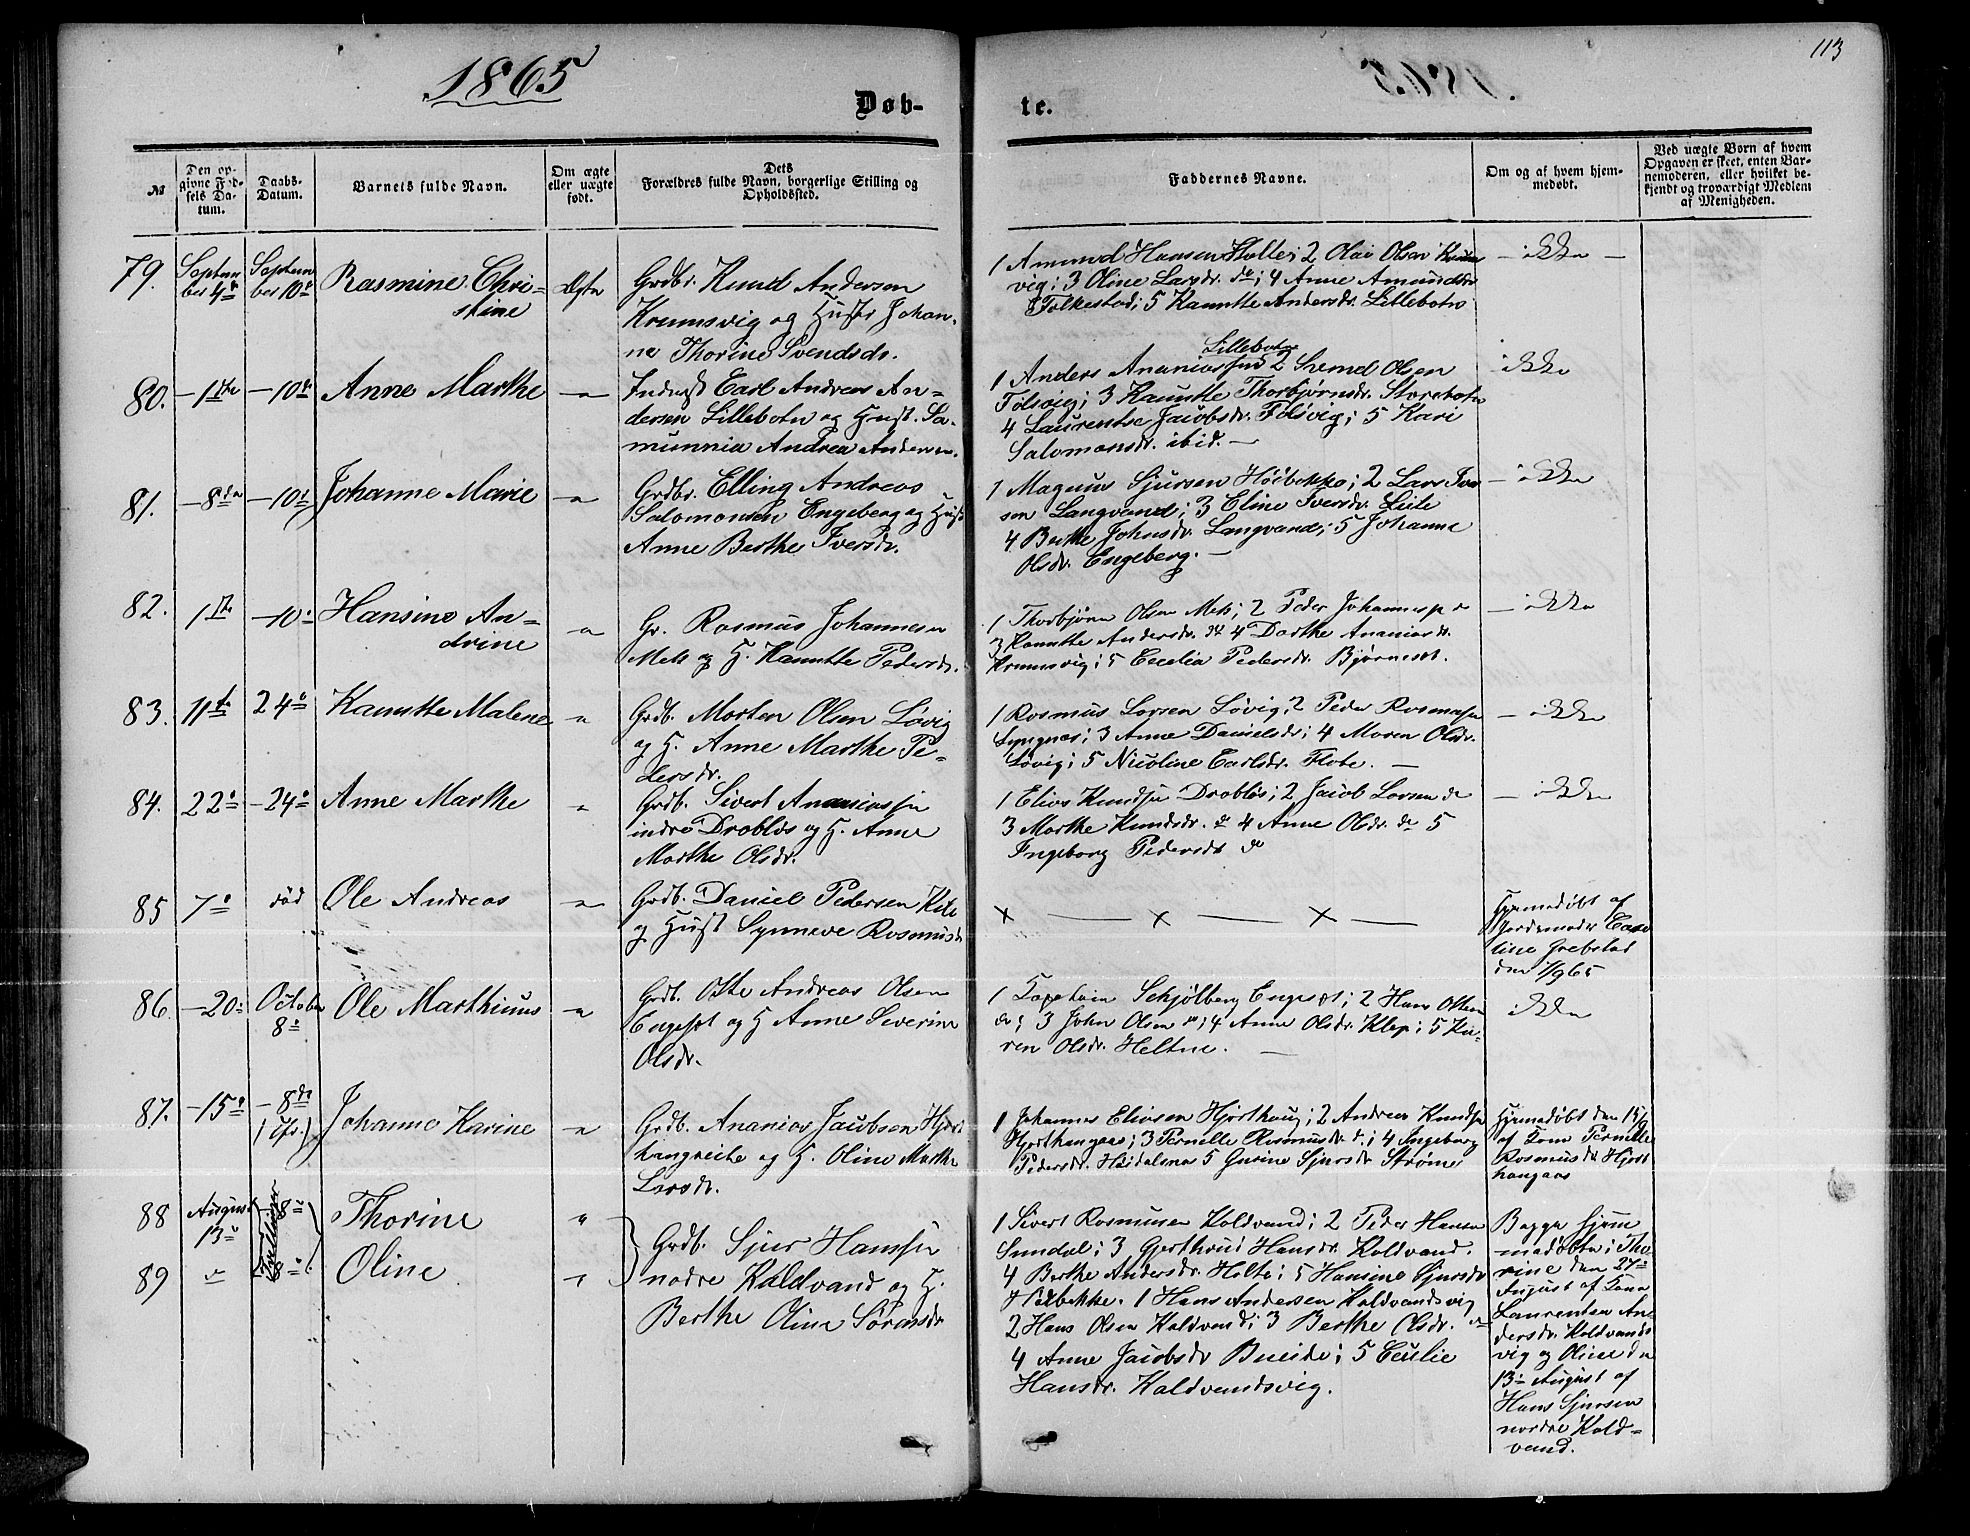 113
1865
Døb-
te.
№
Den op-
givne Fød-
sels Da-
tum.
Daabs-
Datum.
Barnets fulde Navn.
Om ægte
eller uægte
født.
Dets
Forældres fulde Navn, borgerlige Stilling og
Opholdssted.
Faddernes Navne.
Om og af hvem hjem-
medøbt.
Ved uægte Børn af hvem
Opgaven er skeet, enten Bar-
nemoderen, eller hvilket be-
kjendt og troværdigt Medlem
af Menigheden.
79. Septem Septem Rasmine Chri-
ber 4de ber 10de stine
Ægte Grdbr. Knud Andersen
Krumsvig og Hustr Johan-
ne Thorine Svendsdr.
1 Amund Hansen 2 Olai Olsen
vig; 3 Oline Larsdr. do; 4 Anne Amundsdr
Folkestad; 5 Kanutte Andersdr. Lillebotn
- ikke -
80. - 1ste - 10de Anne Marthe - " -
Inderst Carl Andreas An-
dersen Lillebotn og Hust. Sa-
munnia Andrea Andersen.
Lillebotn
1 Anders Ananiassen 2 Svend Olsen
Følsvig; 3 Kanutte Thorbjørnsdr. Storebotn
4 Laurentse Jacobsdr. Følsvig; 5 Kari
Salomonsdr. ibid. -
- ikke
81. - 8de - 10de Johanne Marie - " -
Grdbr. Elling Andreas
Salomonsen Engeberg og Hust
Anne Berthe Iversdr.
1 Magnus Sjursen 2 Lars Iver
sen Langvand; 3 Eline Iversdr. Leite
4 Berthe Johnsdr. Langvand; 5 Johanne
Olsdr. Engeberg. -
- ikke
82. 1ste - 10de Hansine An-
drine - " -
Gr. Rasmus Johannesen
Mek og H. Kanutte Pedersdr.
1 Thorbjørn Olsen Mek; 2 Peder Johannesen
3 Kanutte Andersdr. do 4 Dorthe Ananiasdr.
Krumsvig; 5 Cecelia Pedersdr. Bjørneset.
- ikke
83. 11te 24de Kanutte Malene - " -
Grdb. Morten Olsen Løvig
og H. Anne Marthe Pe-
dersdr.
1 Rasmus Larsen Løvig; 2 Peder Rasmusen
Lyngnes; 3 Anne Danielsdr; 4 Maren Olsdr.
Løvig; 5 Nicoline Carlsdr. Flote. -
- ikke
84. 22de - 24de Anne Marthe "
Grdb. Sivert Ananiassen
indre Drabløs og H. Anne
Marthe Olsdr.
1 Elias Knudsen Drabløs; 2 Jacob Larsen do
3 Marthe Knudsdr. do 4 Anne Olsdr. do 5
Ingeborg Pedersdr do
- ikke
85 7de død Ole Andreas - " -
Grdb. Daniel Pedersen Kile
og Hust Synneve Rasmusdr
x — x — x —
Hjemmedøbt af
Jordemoder Caro
line Grebstad
den 7/9 65
86. - 20de October
8de Ole Marthinus - " -
Grdb. Otte Andreas Olsen
Engeset og H Anne Severine
Olsdr.
1 Schjølberg Engeset; 2 Hans Ottesen
do; 3 John Olsen do; 4 Anne Olsdr. Klep; 5 Ka-
ren Olsdr. Heltne. -
ikke
87. - 15de - 8de
Johanne Karine - " -
Grdb. Ananias Jacobsen Hjort
haugreite og H. Oline Marthe
Larsdr.
1 Johannes Eliasen Hjorthaug; 2 Andreas Knudsen
Hjorthaugaas; 3 Pernille Rasmusdr. do; 4 Ingeborg
Pedersdr. 5 Gurine Sjursdr Strøme
Hjemmedøbt den 15/9
af Kone Pernille
Rasmusdr Hjort
haugaas
88 August
13de
Tvillinger
8de Thorine "
89 " 8de Oline "
Grdb. Sjur Hansen
nordre Kaldvand og H.
Berthe Oline Sørensdr
1 Sivert Rasmusen Kaldvand; 2 Peder Hansen
Sundal; 3 Gjerthrud Hansdr. Kaldvand.
4 Berthe Andersdr. Holte; 5 Hansine Sjursdr
1 Hans Andersen Kaldvandsvig
2 Hans Olsen Kaldvand; 3 Berthe Olsdr. do
4 Anne Jacobsdr Bueide; 5 Cecilie
Hansdr. Kaldvandsvig.
Begge hjem
medøbte; Tho-
rine den 27de
August af Kone
Laurentse An-
dersdr. Kaldvands
vig og Oline den
13de August af
Hans Sjursen
nordre Kald-
vand.